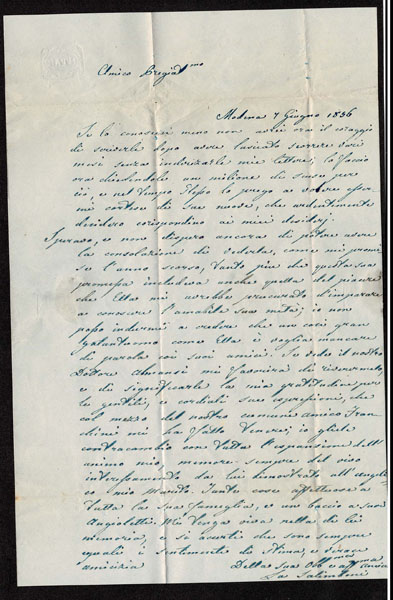 Amico Pregiat.mo
Modena 7 Giugno 1836
Se la conoscessi meno non avrei ora il coraggio
di scriverle dopo avere lasciato scorrere vari
mesi senza indirizzarle mie lettere; lo faccio
ora chiedendole un milione di scuse per
ciò, e nel tempo stesso la prego a volere esser
mi cortese di sue nuove, che ardentemente
desidero corispondino ai miei desiderj.
Speravo, e non dispero ancora di potere avere
la consolazione di vederla, come mi promi
se l'anno scorso, tanto più che questa sua
promessa includeva anche quella del piacere
che Ella mi avrebbe procurato d'imparare
a conoscere l'amabile sua metà; io non
posso indurmi a credere che un così gran
galantuomo come Ella è voglia mancare
di parola coi suoi amici. Se vede il nostro
Dottore mi favorirà di riverirmelo
e di significarle la mia gratitudine per
le gentili, e cordiali sue espressioni, che
col mezzo del nostro comune amico Fran
chini mi ha fatto tenere; io gliele
contracambio con tutta l'espansione dell'
animo mio, memore sempre del vivo
interessamento da lui dimostrato all'
e mio Marito. Tante cose affettuose a
tutta la sua famiglia, e un baccio a suoi
Angioletti. Mi tenga viva nella di lei
memoria, e si accerti che sono sempre
eguali i sentimenti di stima, e verace
amicizia
Della Sua Obb.ma Amica
La